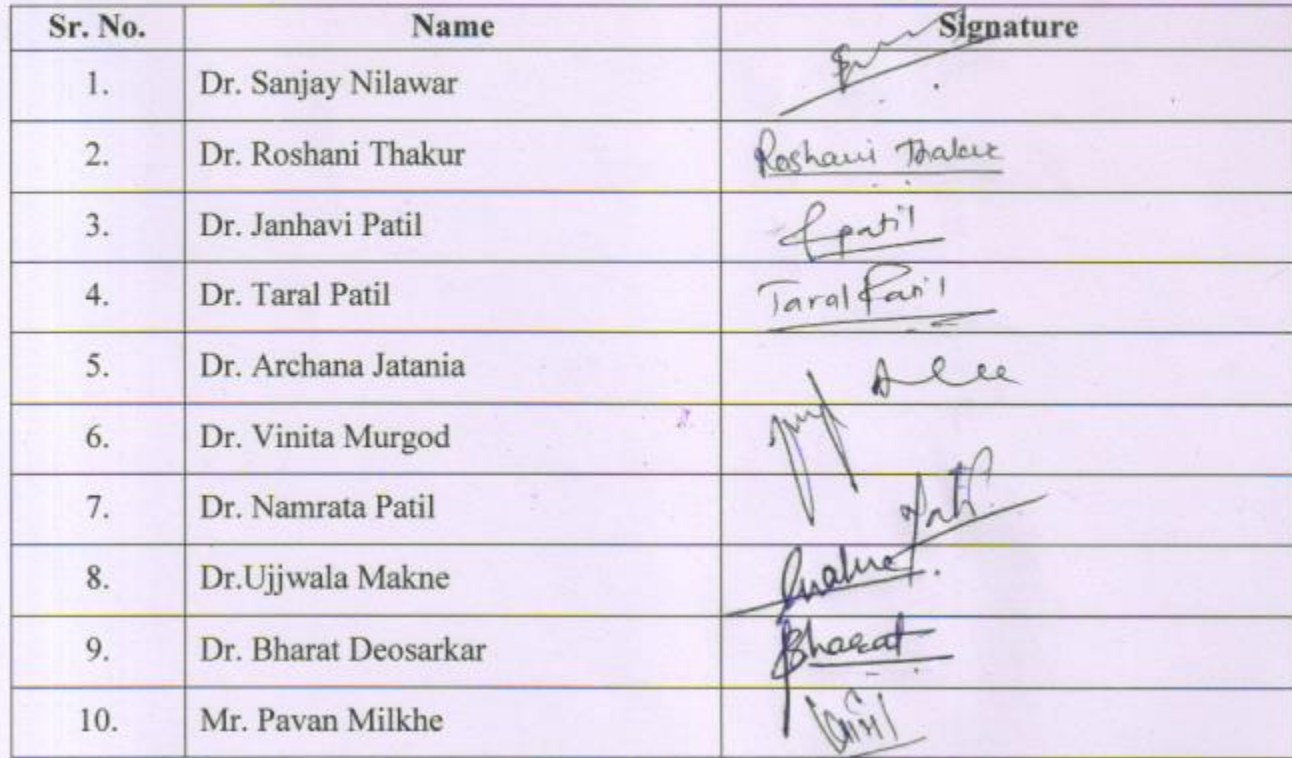 Sr. No. Name Signature
1. Dr. Sanjay Nilawar
2. Dr. Roshani Thakur Roshani Thakur
3. Dr. Janhavi Patil Jpatil
4. Dr. Taral Patil Taral Patil
5. Dr. Archana Jatania
6. Dr. Vinita Murgod
7. Dr. Namrata Patil
8. Dr.Ujjwala Makne
9. Dr. Bharat Deosarkar Bharat
10. Mr. Pavan Milkhe